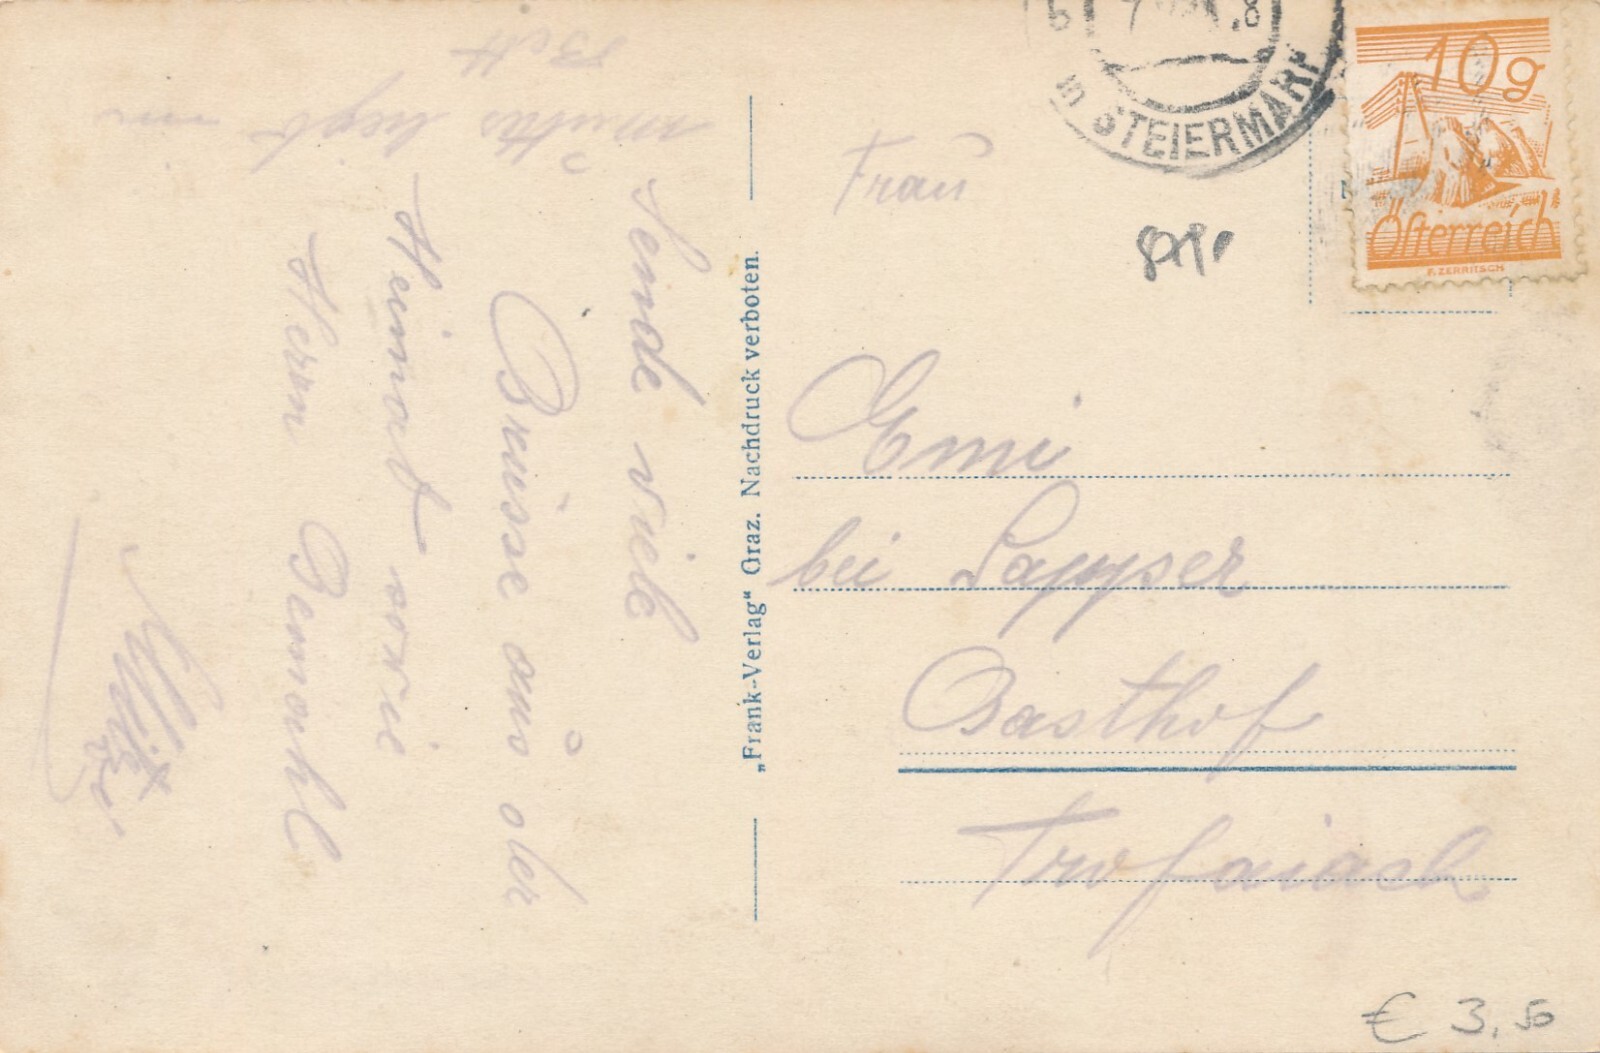 Sende viele
Grüsse aus der
Heimat sowie
Herrn Gemahl
Mitzi
liegt im
Bett
„Frank-Verlag“ Graz. Nachdruck verboten.
STEIERMARK
10g
Österreich
F. ZERRITSCH
Frau
Emi
bei Sappser
Gasthof
Trofaiach
€ 3,50